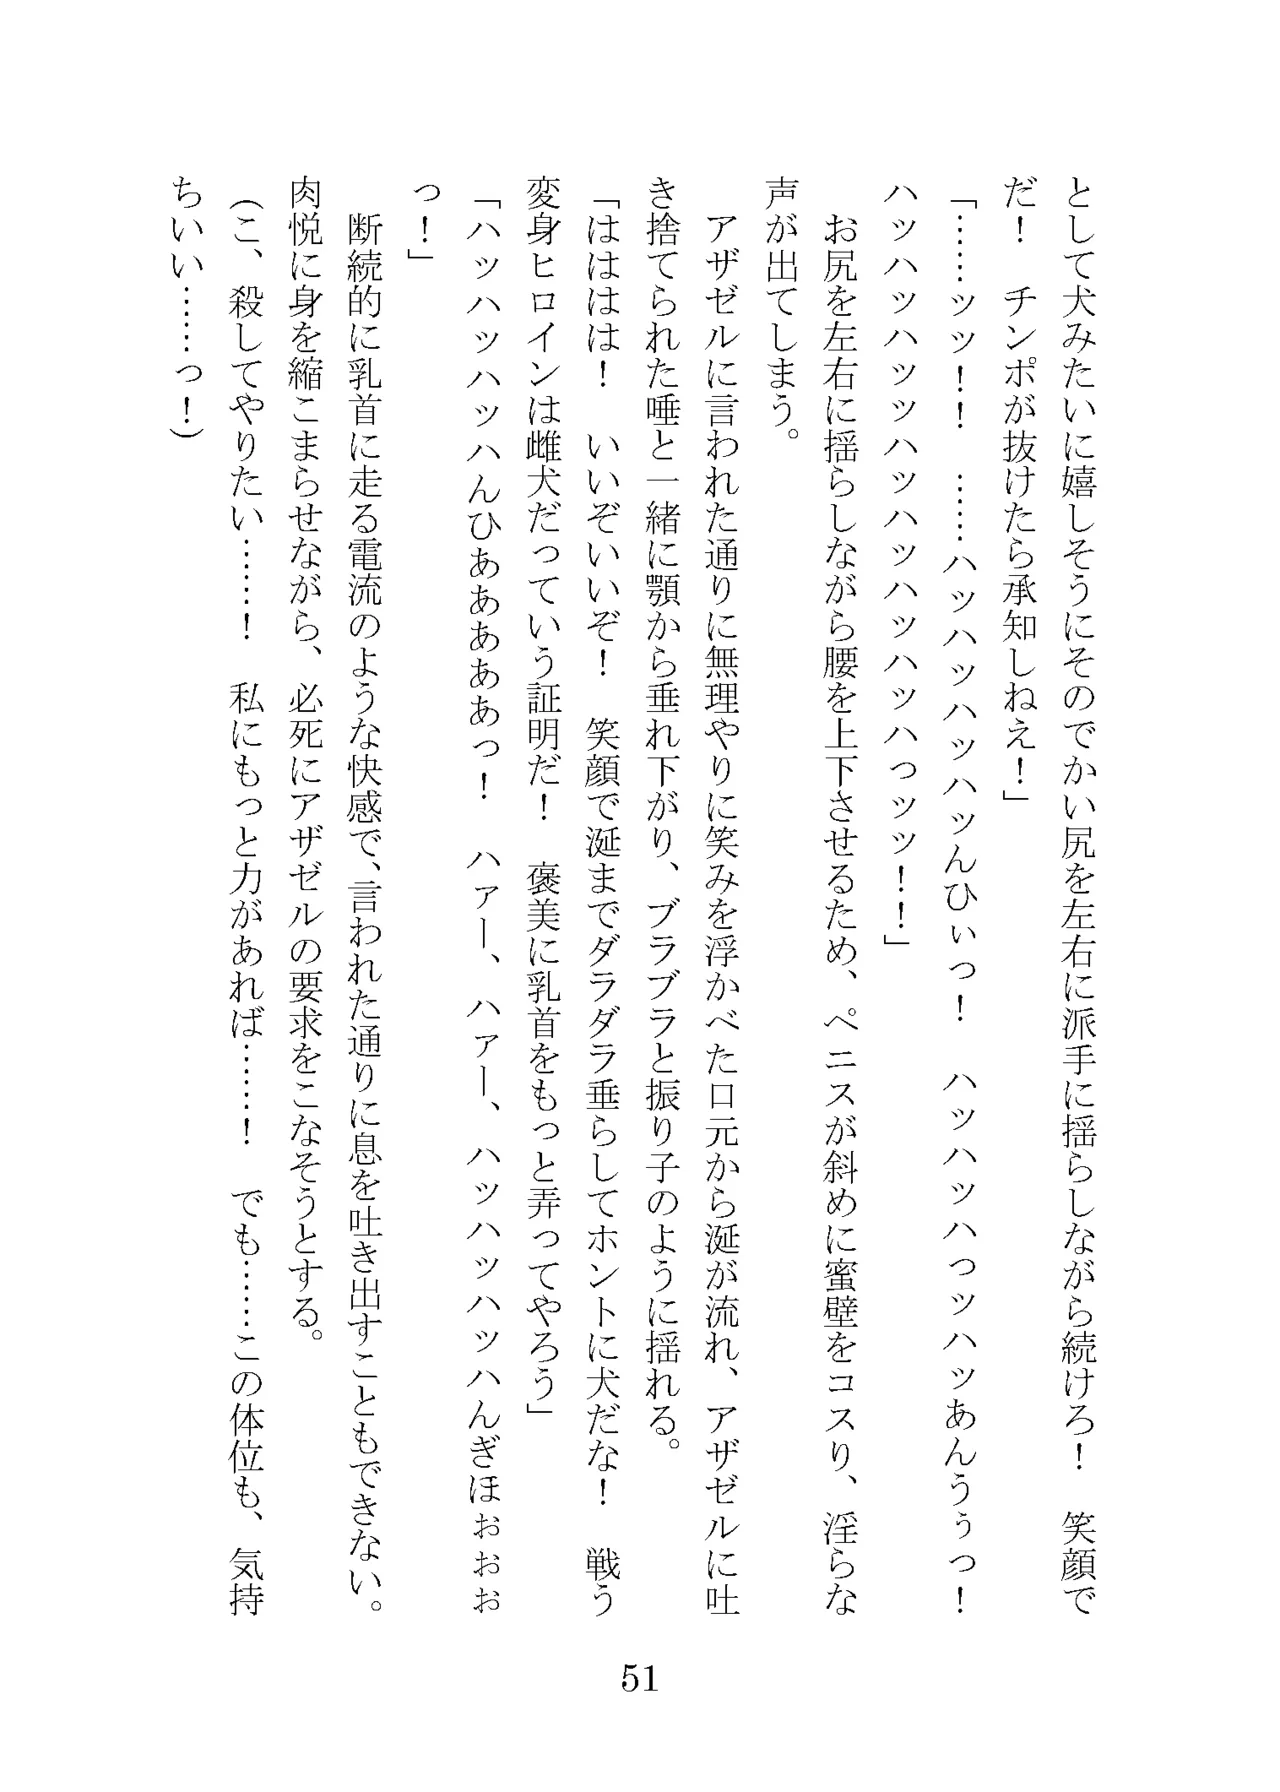 として犬みたいに嬉しそうにそのでかい尻を左右に派手に揺らしながら続けろ！　笑顔で
だ！　チンポが抜けたら承知しねえ！」
「……ッッ！！　……ハッハッハッハッんひぃっ！　ハッハッハっッハッあんうぅっ！
ハッハッハッッハッハッハッハッハっッッ！！」
　お尻を左右に揺らしながら腰を上下させるため、ペニスが斜めに蜜壁をコスり、淫らな
声が出てしまう。
　アザゼルに言われた通りに無理やりに笑みを浮かべた口元から涎が流れ、アザゼルに吐
き捨てられた唾と一緒に顎から垂れ下がり、ブラブラと振り子のように揺れる。
「はははは！　いいぞいいぞ！　笑顔で涎までダラダラ垂らしてホントに犬だな！　戦う
変身ヒロインは雌犬だっていう証明だ！　褒美に乳首をもっと弄ってやろう」
「ハッハッハッハんひあああああっ！　ハァー、ハァー、ハッハッハッハんぎほぉぉぉ
っ！」
　断続的に乳首に走る電流のような快感で、言われた通りに息を吐き出すこともできない。
肉悦に身を縮こまらせながら、必死にアザゼルの要求をこなそうとする。
（こ、殺してやりたい……！　私にもっと力があれば……！　でも……この体位も、気持
ちいい……っ！）
51